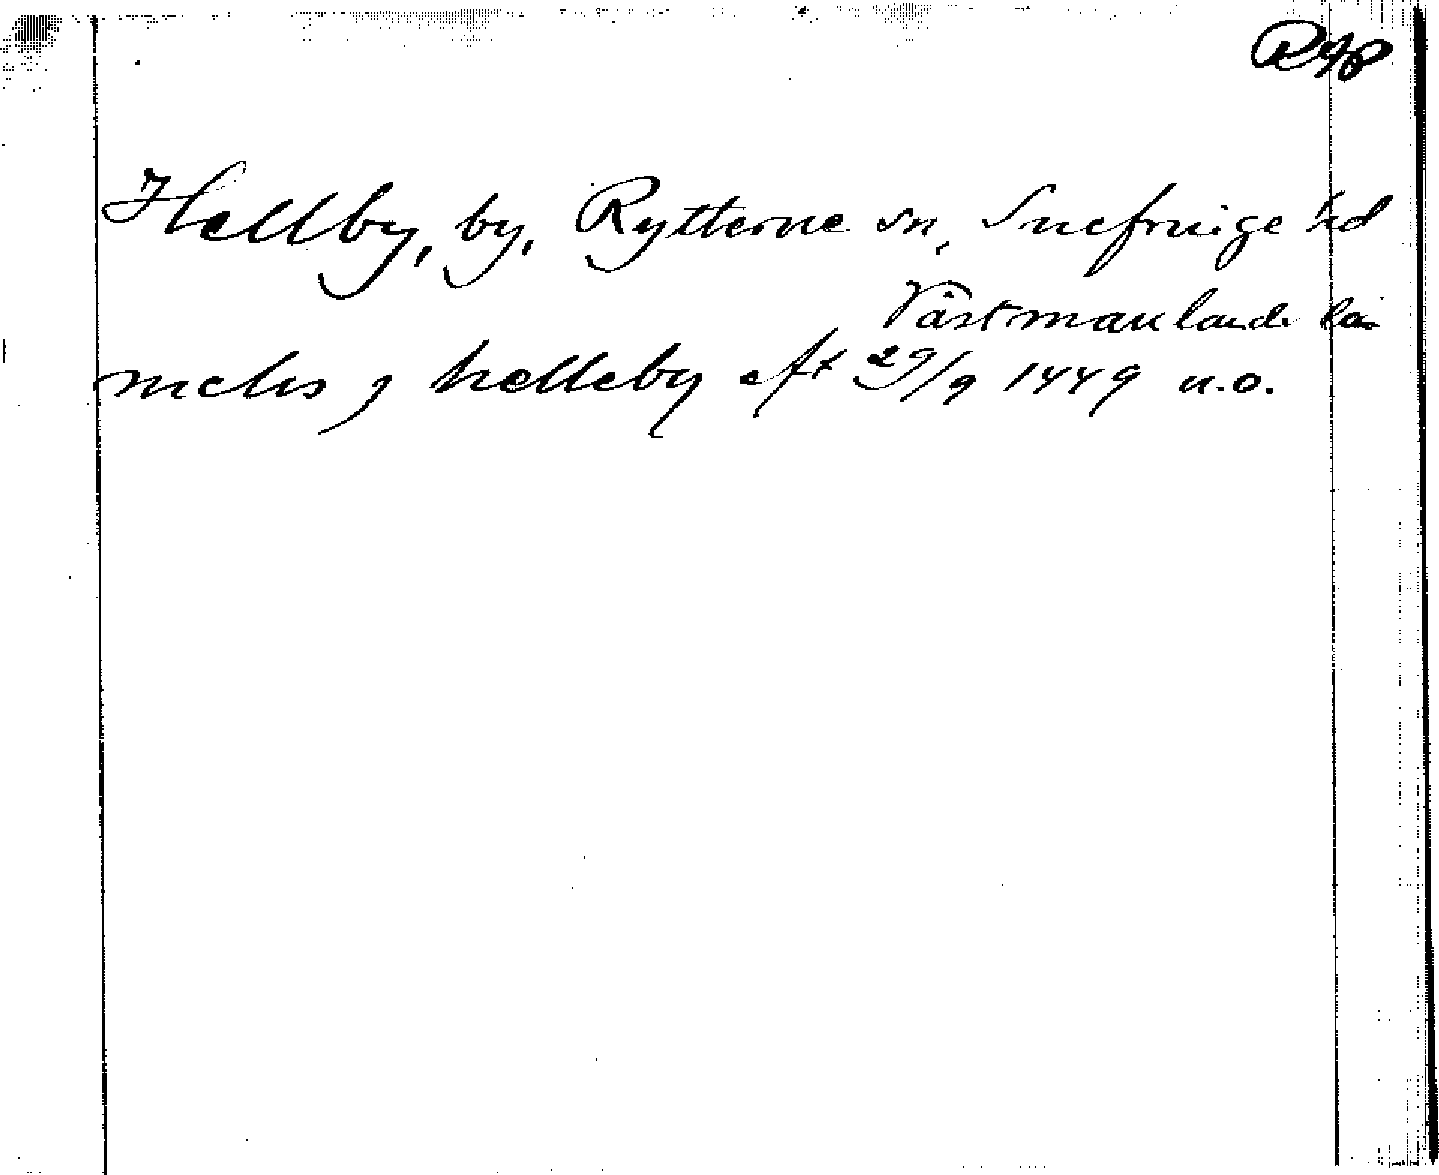 Hællby, by, Rytterne sn, Snefringe hd
Västmanlands län
nichis j hælleby aft 29/9 1449 n.o.